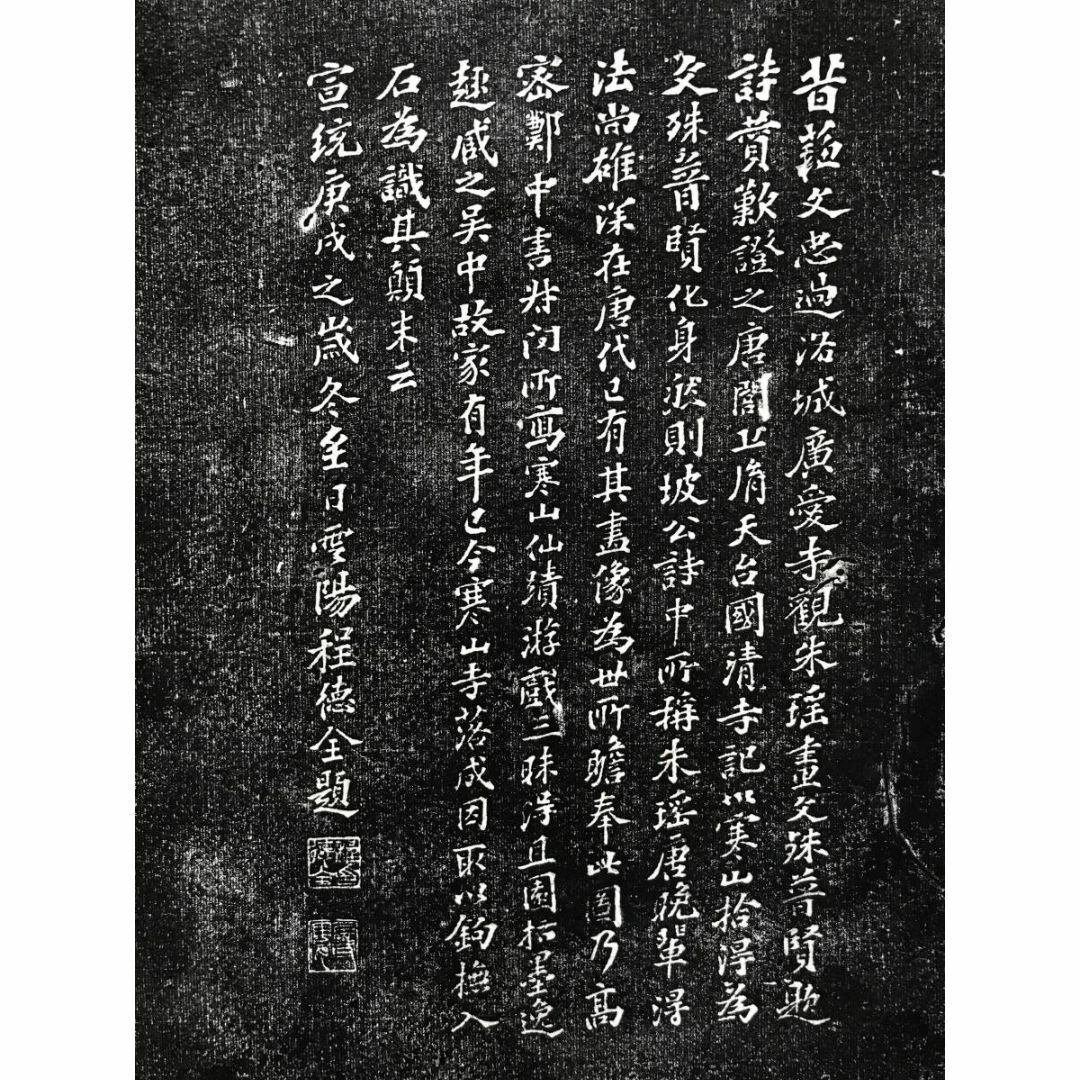 昔蘓文忠過洛城廣愛寺觀朱瑶畫文殊普賢題
詩贊歎證之唐閭丘胤天台國清寺記以寒山拾淂為
文殊普賢化身然則坡公詩中所稱朱瑶唐晚輩淂
法尚雄深在唐代已有其畫像為世所瞻奉此圖乃高
密鄭中書叔问所寫寒山仙蹟游戲三昧淂且園指墨逸
趣藏之吴中故家有年已今寒山寺落成因取以鉤橅入
石為識其顛末云
宣统庚戌之歲冬至日雲陽程德全題